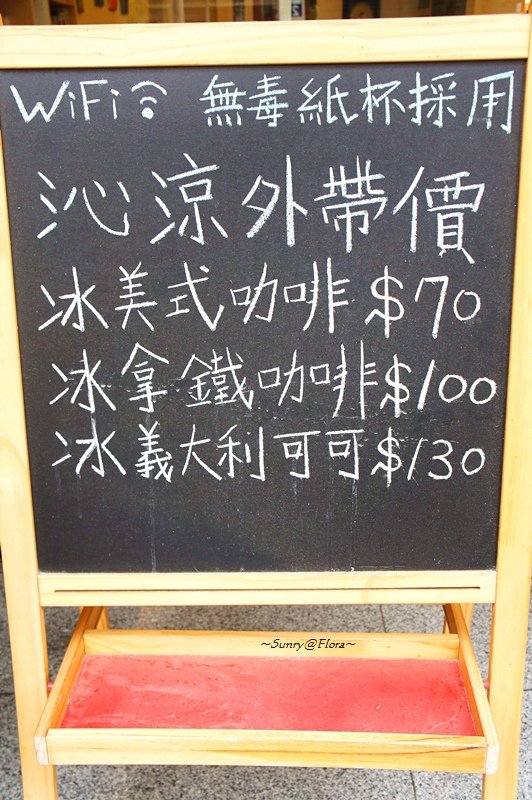 WiFi 無毒紙杯採用
沁涼外帶價
冰美式咖啡 $70
冰拿鐵咖啡 $100
冰義大利可可 $130
~Sunry@Flora~